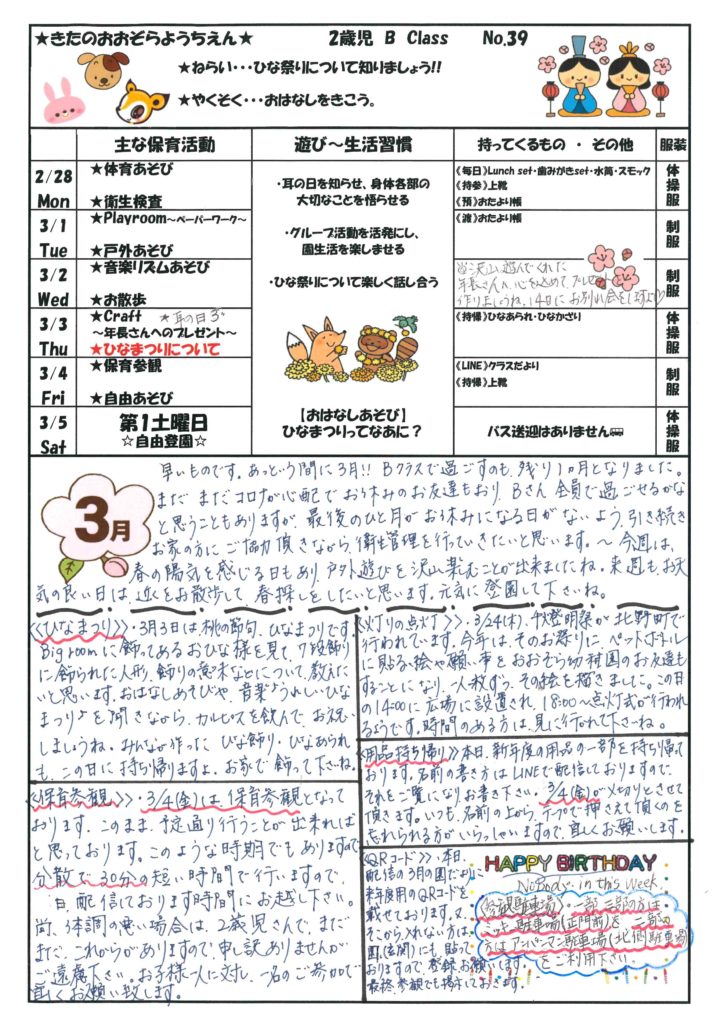 ★きたのおおぞらようちえん★ 2歳児 B Class No.39
★ねらい・・・ひな祭りについて知りましょう!!
★やくそく・・・おはなしをきこう。
主な保育活動 遊び～生活習慣 持ってくるもの・その他 服装
2/28 Mon
★体育あそび
★衛生検査
《毎日》Lunch set・歯みがきset・水筒・スモック
《持参》上靴
《預》おたより帳
体操服
3/1 Tue
★Playroom～ペーパーワーク～
★戸外あそび
《渡》おたより帳
制服
3/2 Wed
★音楽リズムあそび
★お散歩
沢山遊んでくれた
年長さんへ、心を込めて、プレゼント
作りましょうね。14日にお別れ会をします♡
制服
3/3 Thu
★Craft ★耳の日
～年長さんへのプレゼント～
★ひなまつりについて
《持帰》ひなあられ・ひなかざり
体操服
3/4 Fri
★保育参観
★自由あそび
《LINE》クラスだより
《持帰》上靴
制服
3/5 Sat
第1土曜日
☆自由登園☆
バス送迎はありません
体操服
・耳の日を知らせ、身体各部の
大切なことを悟らせる
・グループ活動を活発にし、
園生活を楽しませる
・ひな祭りについて楽しく話し合う
【おはなしあそび】
ひなまつりってなあに？
3月
早いものです。あっという間に3月!! Bクラスで過ごすのも、残り1ヵ月となりました。
まだまだコロナが心配でお休みのお友達もおり、Bさん全員で過ごせるかな
と思うこともありますが、最後のひと月がお休みになる日がないよう、引き続き
お家の方にご協力頂きながら、衛生管理を行っていきたいと思います。～今週は、
春の陽気を感じる日もあり、戸外遊びを沢山楽しむことが出来ましたね。来週も、お天
気の良い日は、近くをお散歩して、春探しをしたいと思います。元気に登園して下さいね。
《ひなまつり》・3月3日は桃の節句、ひなまつりです。
Big roomに飾ってあるおひな様を見て、7段飾り
に飾られた人形、飾りの意味などについて、教えたい
と思います。おはなしあそびや、音楽♪うれしいひな
まつり♪を聞きながら、カルピスを飲んで、お祝い
しましょうね。みんなが作ったひな飾り・ひなあられ
も、この日に持ち帰りますよ。お家で飾って下さいね。
《保育参観》・3/4(金)は、保育参観となって
おります。このまま、予定通り行うことが出来れば
と思っております。このような時期でもありますので
分散で30分の短い時間で行いますので、
日配信しております時間にお越し下さい。
尚、体調の悪い場合は、2歳児さんでまだ
まだ、これからがありますので、申し訳ありませんが
ご遠慮下さい。お子様一人に対し、一名のご参加で
宜しくお願い致します。
《灯りの点灯》・3/24(木)、秋登明祭が北野町で
行われています。今年は、そのお祭りにペットボトル
に貼る絵や願い事をおおぞら幼稚園のお友達も
することになり、一人一枚ずつ、その絵を描きました。この日
の14:00に広場に設置され、18:00～点灯式が行われ
るようです。時間のある方は、見に行かれて下さいね。
《用品持ち帰り》本日、新年度の用品の一部を持ち帰って
おります。名前の書き方はLINEで配信しておりますので、
それをご覧になりお書き下さい。3/4(金)が〆切りとさせて
頂きます。いつも、名前の上から、テープで押さえて頂くのを
忘れられる方がいらっしゃいますので、宜しくお願いします。
《QRコード》・本日、
配信の3月の園だよりに
来年度用のQRコードを
載せております。又、
そこから入れない方は、
園(玄関)にも、貼って
おりますので登録お願いします。
最終、参観でも掲示しておきます。
HAPPY BIRTHDAY
Nobody in this week
《参観駐車場》・一部、三部の方は
駐車場(正門前)を、二部の
方はアンパンマン駐車場(北側駐車場)
をご利用下さい。